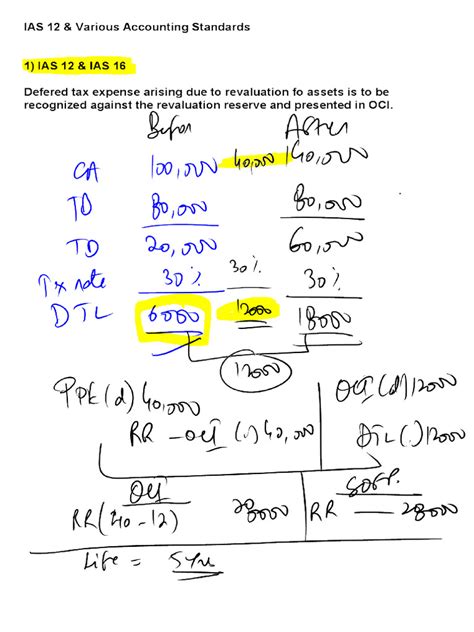 IAS 12 & Various Accounting Standards
1) IAS 12 & IAS 16
Defered tax expense arising due to revaluation fo assets is to be
recognized against the revaluation reserve and presented in OCI.
Before After
CA 100,000 40,000 140,000
TB 80,000 80,000
TD 20,000 60,000
Tx rate 30% 30% 30%
DTL 6000 12000 18000
12000
PPE (d) 40,000 OCI (d) 12000
RR - OCI (.) 40,000 DTL (.) 12000
OCI SOFP.
RR (40-12) 28000 RR — 28000
Life = 5 yrs